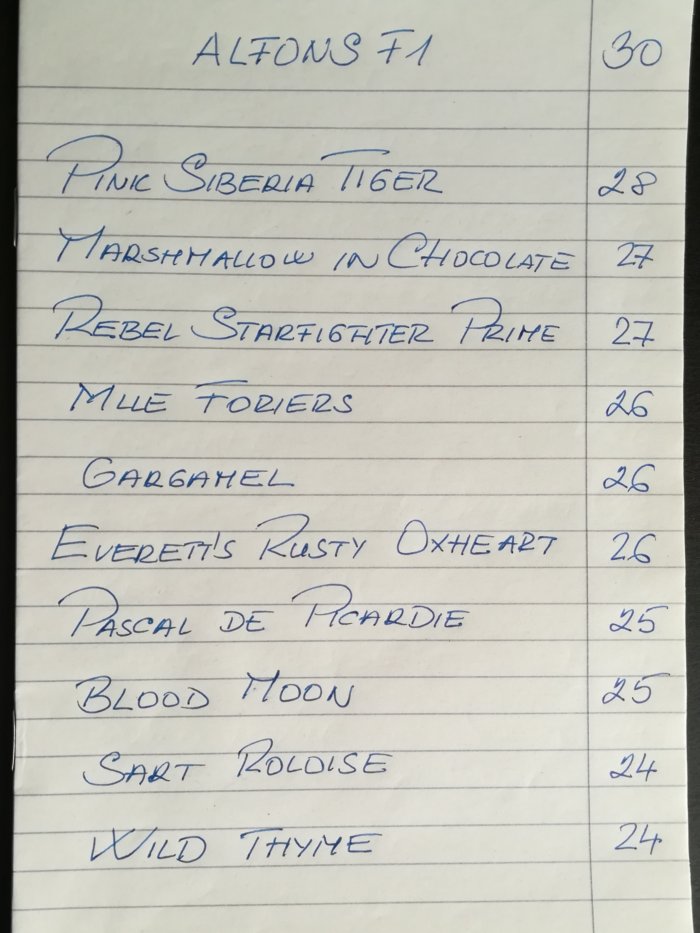 ALFONS F1 30
PINK SIBERIA TIGER 28
MARSHMALLOW IN CHOCOLATE 27
REBEL STARFIGHTER PRIME 27
MLLE FORIERS 26
GARGAMEL 26
EVERETT'S RUSTY OXHEART 26
PASCAL DE PICARDIE 25
BLOOD MOON 25
SART ROLOISE 24
WILD THYME 24